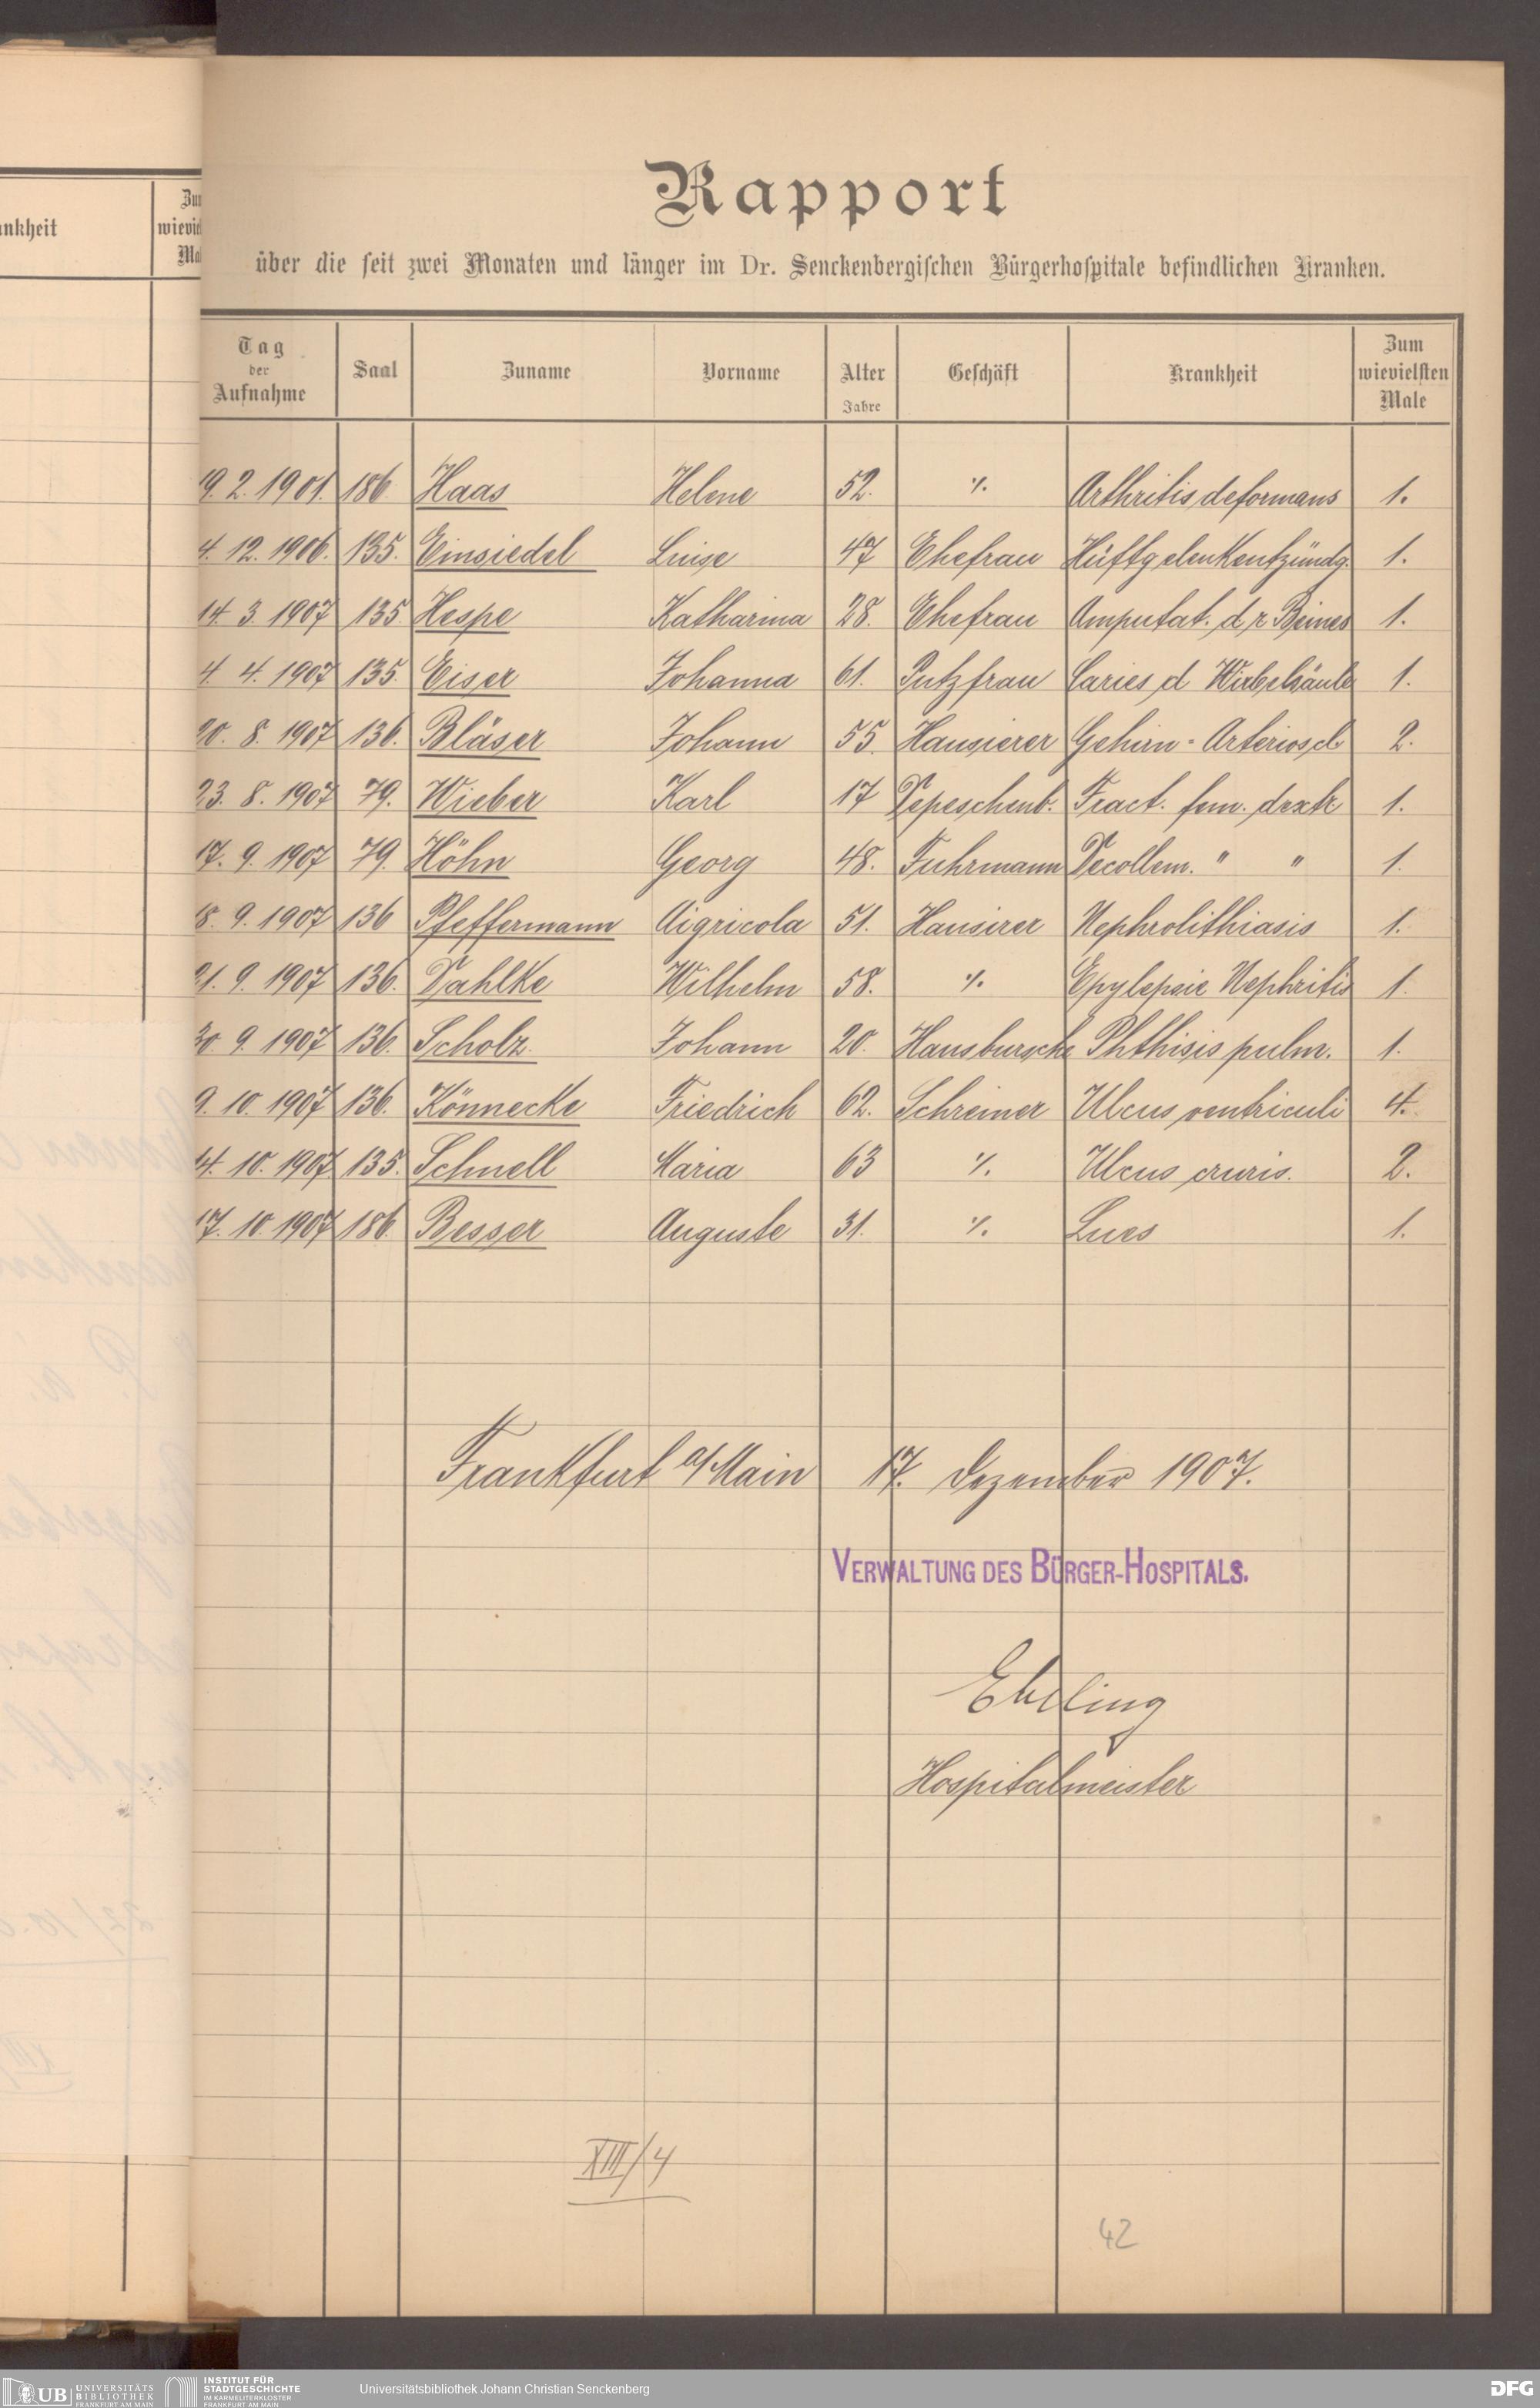 ankheit
Zum
wieviel
Mal
Rapport
über die seit zwei Monaten und länger im Dr. Senckenbergischen Bürgerhospitale befindlichen Kranken.
Tag der Aufnahme Saal Zuname Vorname Alter Jahre Geschäft Krankheit Zum wievielsten Male
19. 2. 1901. 186 Haas Helene 52. ·/. Arthritis deformans 1.
4. 12. 1906. 135. Einsiedel Luise 47 Ehefrau Hüftgelenkentzündg. 1.
14. 3. 1907 135. Hespe Katharina 28. Ehefrau Amputat. d r. Beines 1.
4. 4. 1907 135. Eiser Johanna 61. Putzfrau Caries d Wirbelsäule 1.
20. 8. 1907 136. Bläser Johann 55. Hausierer Gehirn-Arterioscl 2.
23. 8. 1907 79. Wieber Karl 17 Depeschenb. Fract. fem. dextr 1.
17. 9. 1907 79. Höhn Georg 48. Fuhrmann Decollem. " " 1.
18. 9. 1907 136 Pfeffermann Aigricola 51. Hausirer Nephrolithiasis 1.
21. 9. 1907 136. Dahlke Wilhelm 58. ·/. Epylepsie Nephritis 1.
30. 9. 1907 136. Scholz. Johann 20. Hausbursche Phthisis pulm. 1.
9. 10. 1907 136. Könnecke Friedrich 62. Schreiner Ulcus ventriculi 4.
10. 1907 135. Schnell Maria 63 ·/. Ulcus cruris. 2.
17. 10. 1907 186 Besser Auguste 31. ·/. Lues 1.
Frankfurt a/Main 17. Dezember 1907.
VERWALTUNG DES BÜRGER-HOSPITALS.
Ebeling
Hospitalmeister
XIII/4
42
UB UNIVERSITÄTS
BIBLIOTHEK
FRANKFURT AM MAIN
INSTITUT FÜR
STADTGESCHICHTE
IM KARMELITERKLOSTER
FRANKFURT AM MAIN
Universitätsbibliothek Johann Christian Senckenberg
DFG